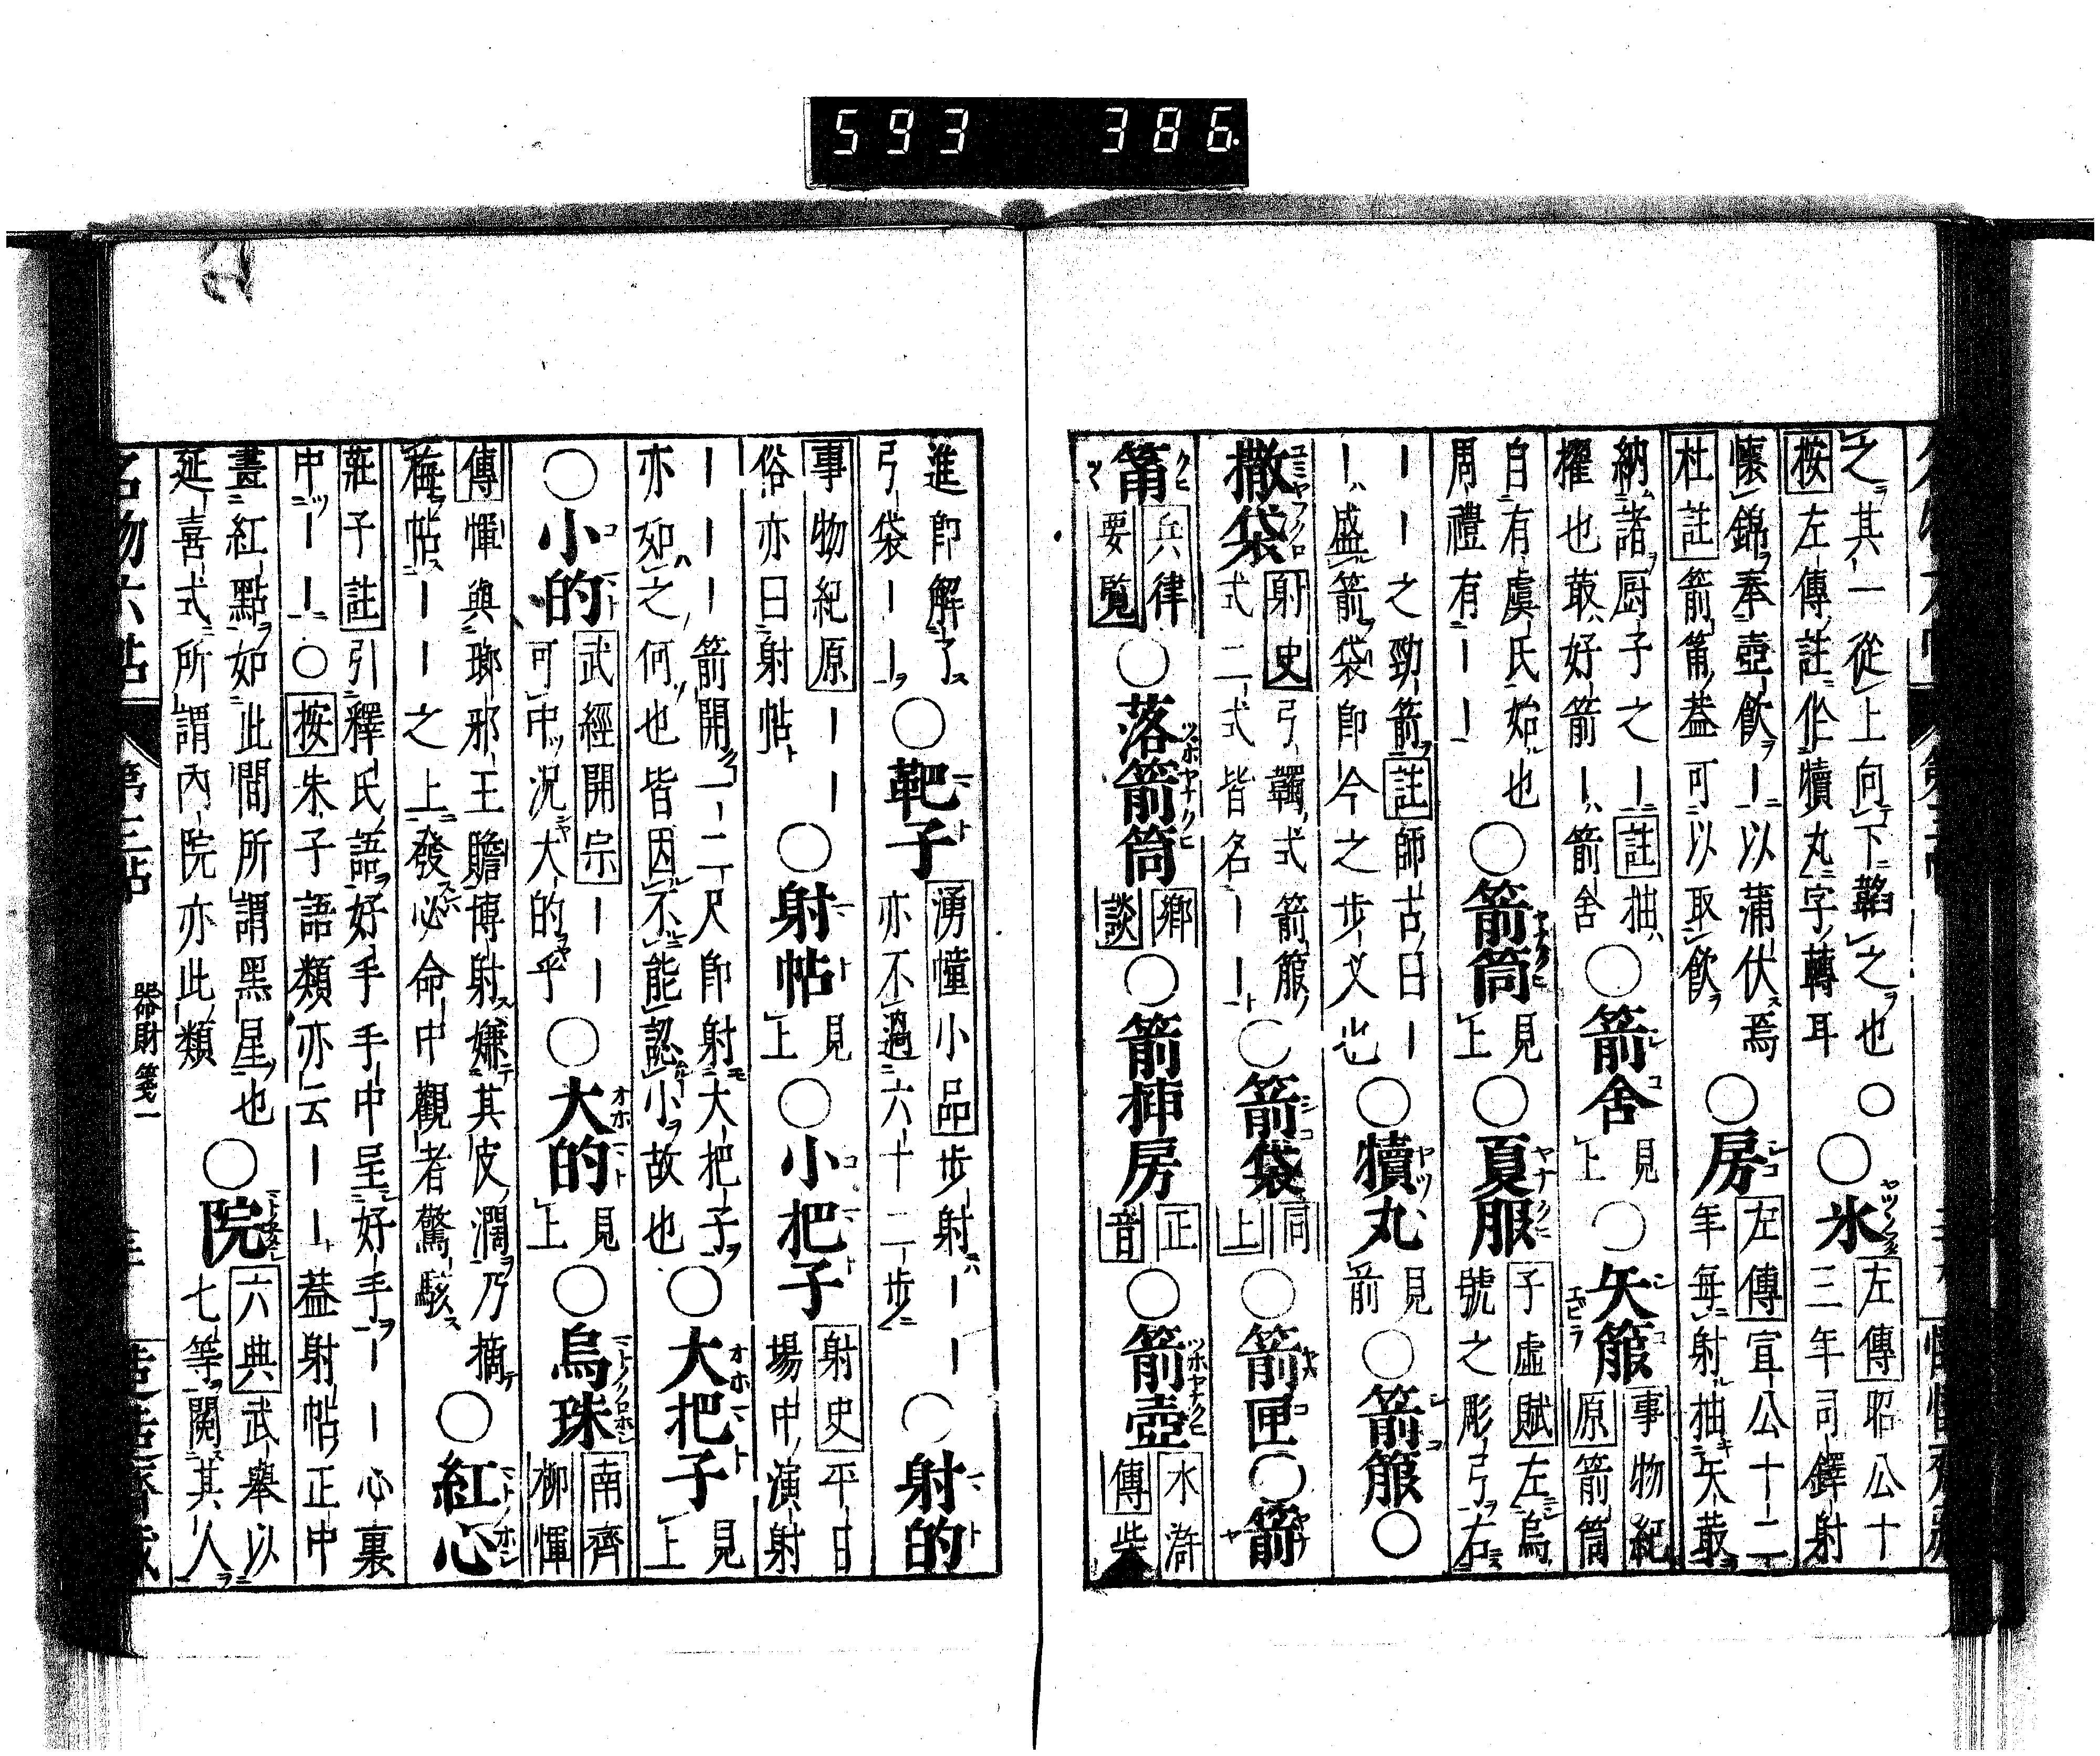 593 386
之其一從上向下韜之也○○氷左傳昭公十
按左傳註作犢丸字轉耳三年司鐸射
懷錦奉壺飲ー以蒲伏焉○房左傳宣公十二
杜註箭筩蓋可以取飲年每射抽矢菆
納諸厨子之ー註抽○箭舍見上○矢箙事物紀
擢也菆好箭ー箭舍原箭筒
自有虞氏始也○箭筒見上○夏服子虛賦左烏
周禮有ーー號之彫弓右
ーー之勁箭註師古曰ー○犢丸見前○箭箙○
ー盛箭袋卽今之步义也
撒袋射史弓韣式箭箙○箭袋同上○箭匣○箭
式二式皆名ーー
筩兵律要覧○落箭筒鄉談○箭揷房正音○箭壺水滸傳柴
進卽解了弓袋ーー○靶子湧幢小品步射ーー亦不過六十二步○射的
事物紀原ーー俗亦曰射帖○射帖見上○小把子射史平日場中演射
ーーー箭開一二尺卽射大把子○大把子見上
亦如之何也皆因不能認小故也
○小的武經開宗ーー可中況大的乎○大的見上○烏珠南齊柳惲
傳惲與瑯邪王瞻博射嫌其皮濶乃摘○紅心
梅帖ーーー之上發必命中觀者驚駭
莊子註引釋氏語好手手中呈好手ーー心裏
中ーー○按朱子語類亦云ーー蓋射帖正中
畫紅點如此間所謂黑星也○院六典武舉以
延喜式所謂內院亦此類七等閱其人
名物六帖 第三帖 器財箋一